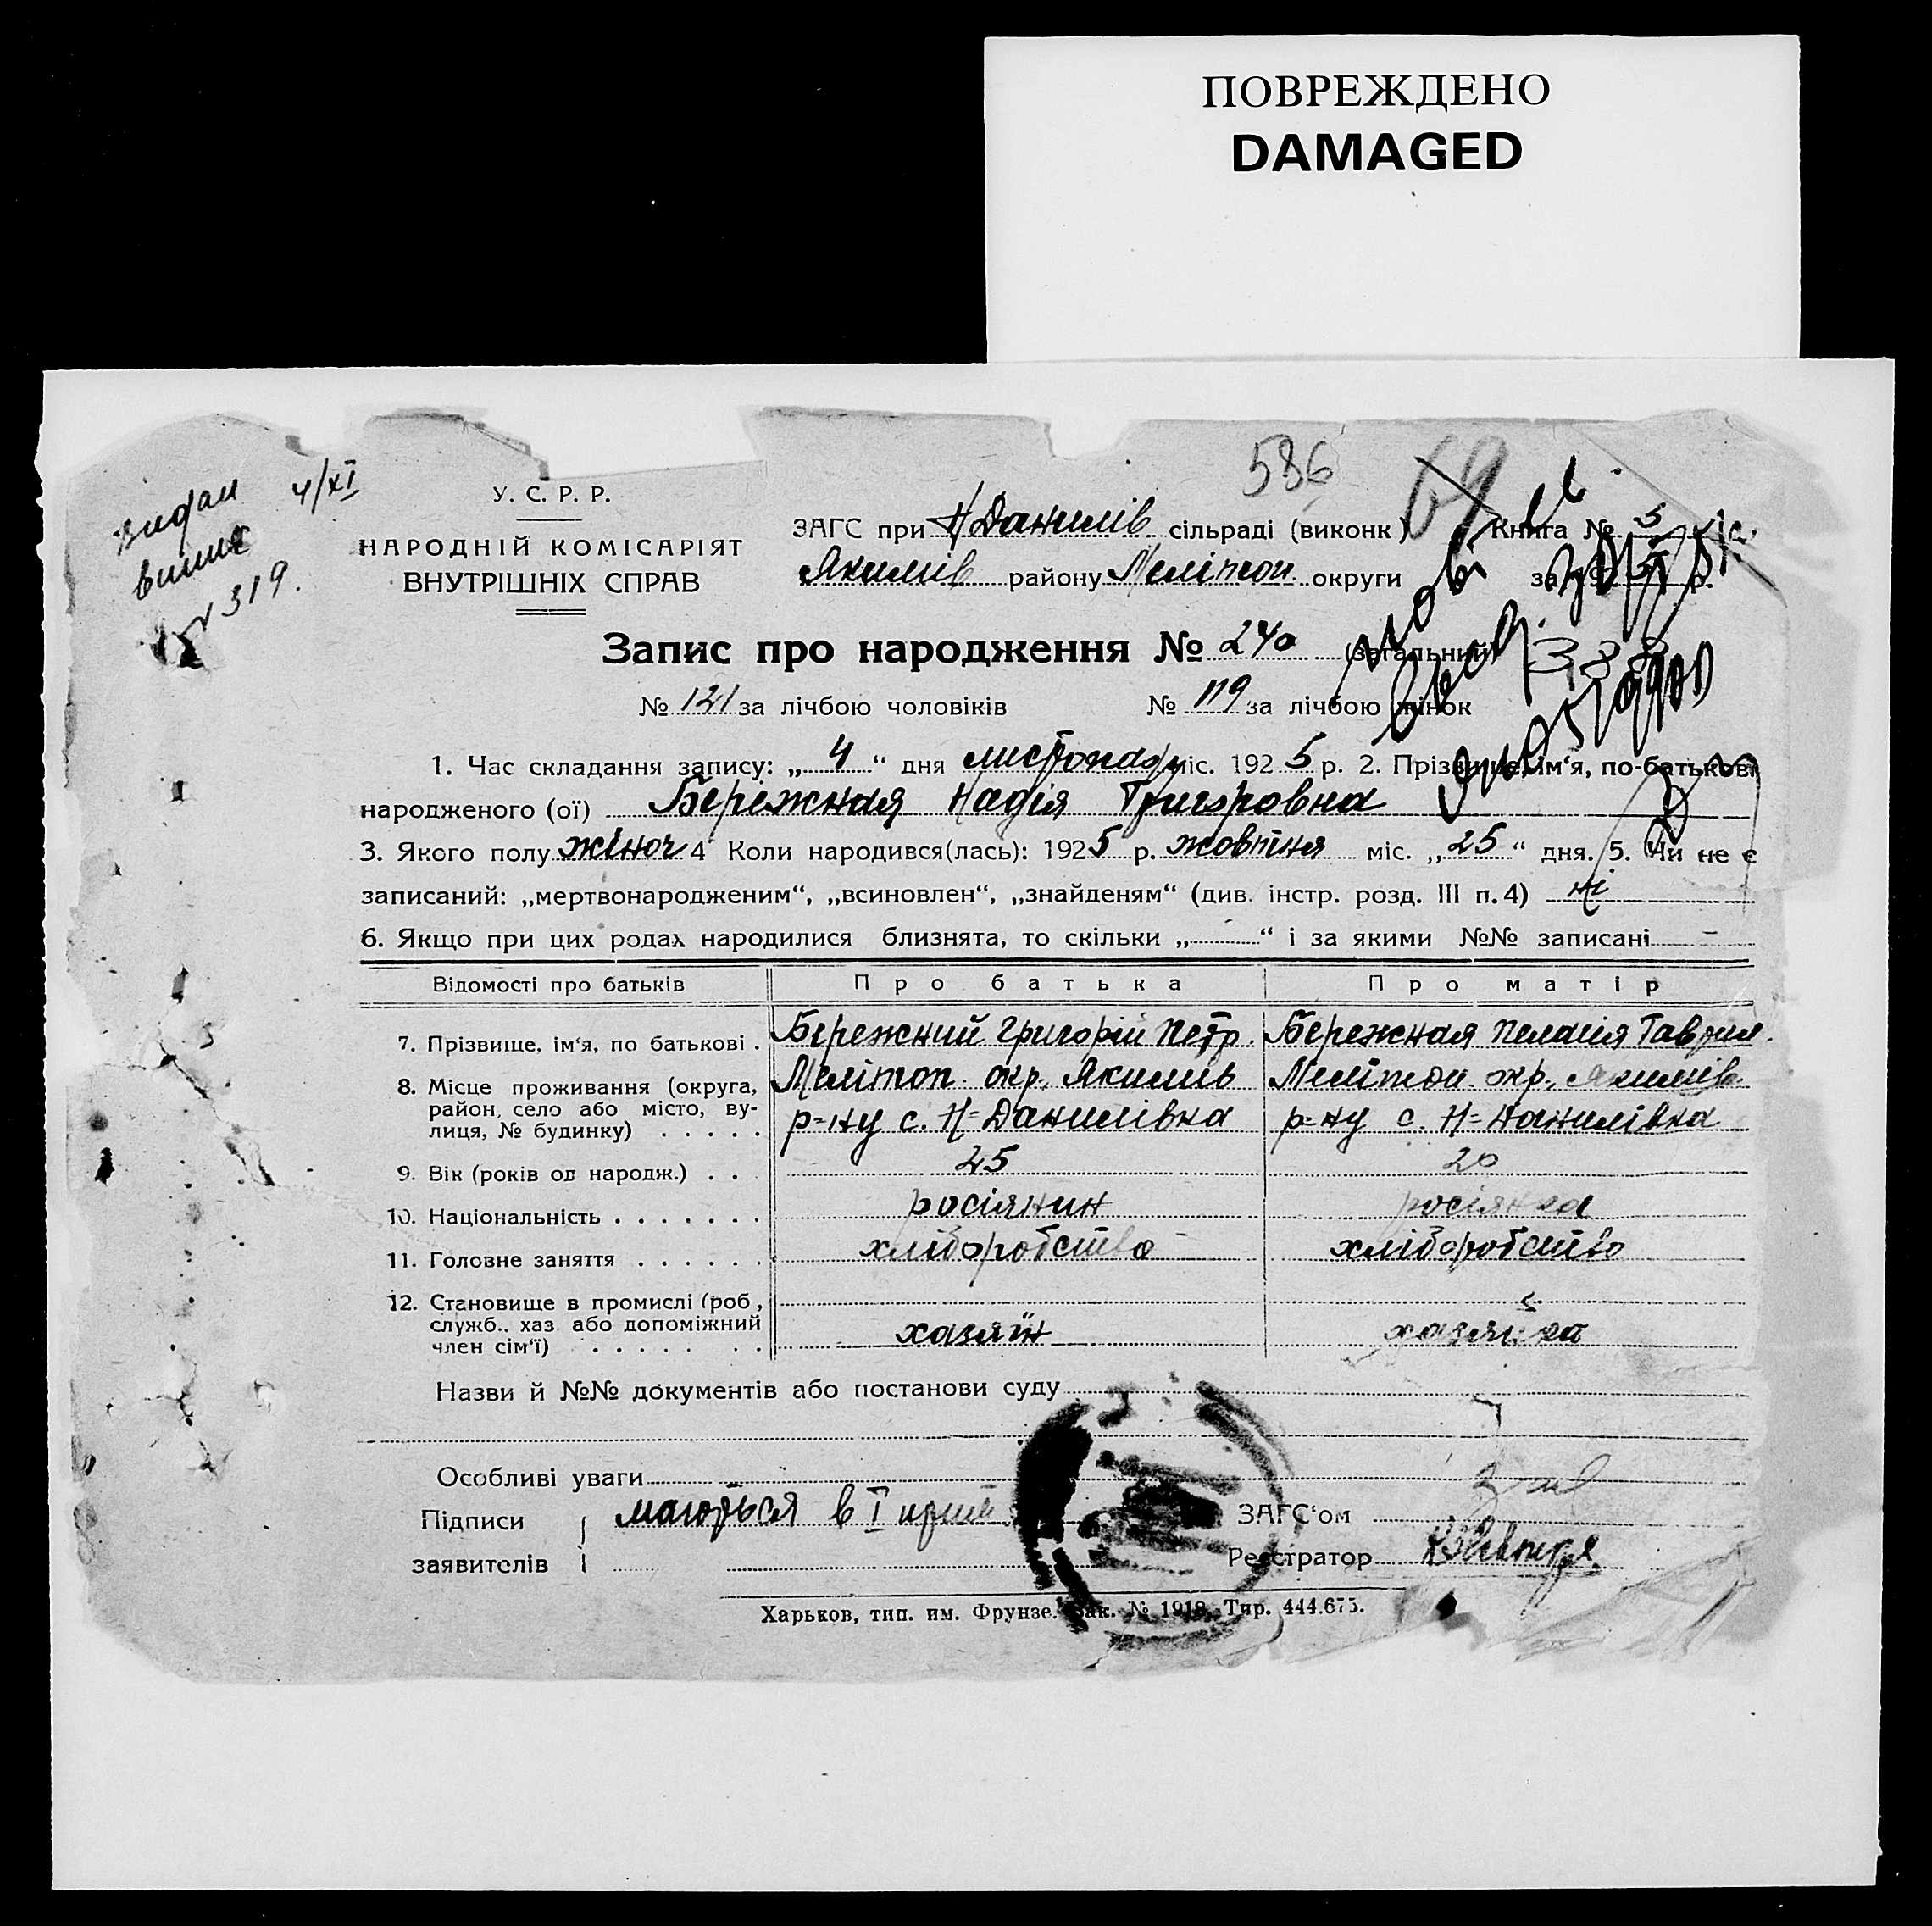 ПОВРЕЖДЕНО
DAMAGED
586
69
4/XI
№ 319.
У. С. Р. Р.
НАРОДНІЙ КОМІСАРІЯТ
ВНУТРІШНІХ СПРАВ
ЗАГС при Н Данилів сільраді (виконк) Книга № 5
Якимів району Меліт́оп. округи за 192 р.
Запис про народження № 240 (загальний)
№ 121 за лічбою чоловіків № 119 за лічбою жінок
1. Час складання запису: „ 4 “ дня листопаду міс. 192 5 р. 2. Прізвище, ім‘я, по-батькові
народженого (ої) Бережная Надія Григоровна
3. Якого полу жіноч 4 Коли народився(лась): 192 5 р. жовтня міс. „ 25 “ дня. 5. Чи не є
записаний: „мертвонародженим“, „всиновлен“, „знайденям“ (див. інстр. розд. III п. 4) ні
6. Якщо при цих родах народилися близнята, то скільки „ “ і за якими №№ записані –
Відомості про батьків Про батька Про матір
7. Прізвище, ім‘я, по батькові . Бережний Григорій Петр. Бережная Пелагія Гаврил.
8. Місце проживання (округа, Мелітоп. окр., Якимів Мелітоп. окр., Якимів.
район, село або місто, ву-
лиця, № будинку) . . . . . р-ну с. Н-Данилівка р-ну с. Н-Данилівка
9. Вік (років од народж.) . . . 25 20
10. Національність . . . . . . . росіянин росіянка
11. Головне заняття . . . . . . хліборобство хліборобство
12. Становище в промислі (роб.,
служб., хаз. або допоміжний
член сім‘ї) . . . . . . . хазяїн хазяйка
Назви й №№ документів або постанови суду
Особливі уваги
Підписи маються в І прим. ЗАГС‘ом
заявителів Реєстратор
Харьков, тип. им. Фрунзе. Зак. № 1918. Тир. 444.675.